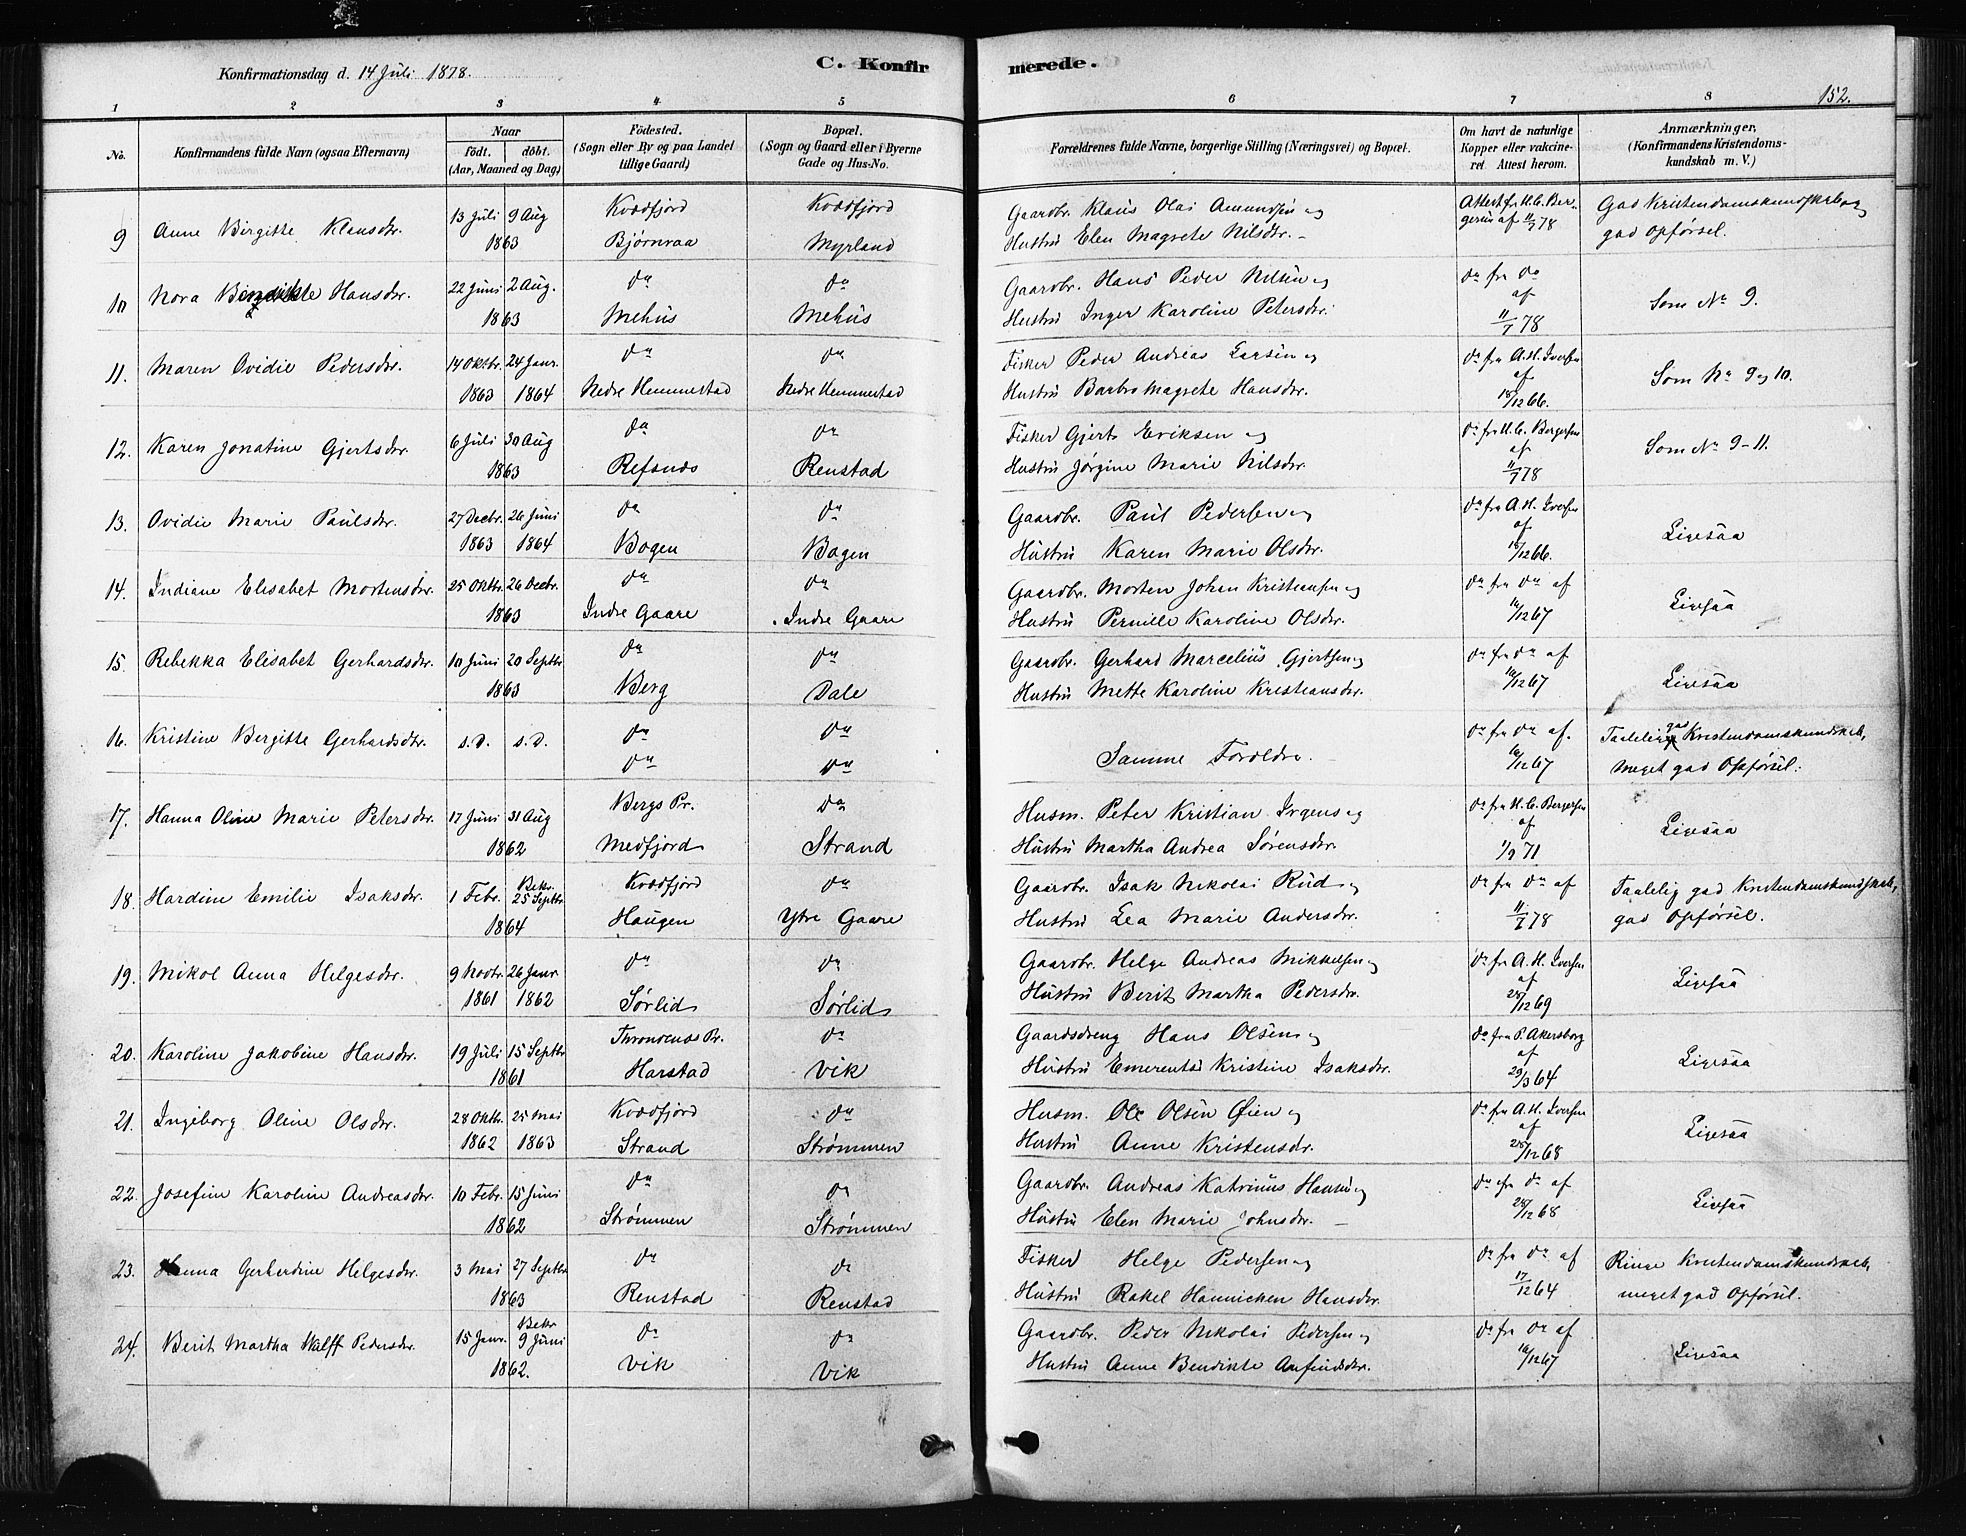 Konfirmationsdag d. 14 Juli 1878.
C. Konfirmerede.
152.
1 2 3 4 5 6 7 8
No.
Konfirmandens fulde Navn (ogsaa Efternavn)
Naar
født. døbt.
(Aar, Maaned og Dag)
Fødested.
(Sogn eller By og paa Landet
tillige Gaard)
Bopæl.
(Sogn og Gaard eller i Byerne
Gade og Hus-No.
Forældrenes fulde Navne, borgerlige Stilling (Næringsvei) og Bopæl.
Om havt de naturlige
Kopper eller vakcine-
ret. Attest herom.
Anmærkninger,
(Konfirmandens Kristendoms-
kundskab m. V.)
9 Anne Birgitte Klausdtr. 13 Juli 9 Aug Kvædfjord Kvædfjord Gaardbr. Klaus Olai Amundsen og Attest fr. U. C. Ber- God Kristendomskundskab og
1863 Bjørnraa Myrland Hustru Elen Magrete Nilsdtr. gersen af 11/7 78 god Opførsel.
10 Nora Bendikte Hansdtr. 22 Juni 2 Aug. do do Gaardbr. Hans Peder Nilsen og do fra do Som No 9.
1863 Mehus Mehus Hustru Inger Karoline Petersdtr. af 11/7 78
11. Maren Ovidie Pedersdtr. 14 Oktbr. 24 Janr. do do Fisker Peder Andreas Larsen og do fra A. H. Iversen Som No 9 og 10.
1863 1864 Nedre Hemmestad Nedre Hemmestad Hustru Barbro Magrete Hansdtr. af 18/12 66.
12. Karen Jonatine Gjertsdtr. 6 Juli 30 Aug do do Fisker Gjert Eriksen og do fra U. C. Bergersen Som No 9-11.
1863 Refsnæs Renstad Hustru Jørgine Marie Nilsdtr. af 11/7 78
13. Ovidie Marie Paulsdtr. 27 Decbr. 26 Juni do do Gaardbr. Paul Pedersen og do fra A. H. Iversen Ligesaa
1863 1864 Bogen Bogen Hustru Karen Marie Olsdtr. af 16/12 66.
14. Indiane Elisabet Mortensdtr. 25 Oktbr. 26 Decbr. do do Gaardbr. Morten Johan Kristiansen og do fra do af Ligesaa
1863 Indre Gaare Indre Gaare Hustru Pernille Karoline Olsdtr. 16/12 67
15. Rebekka Elisabet Gerhardsdtr. 10 Juni 20 Septbr do do Gaardbr. Gerhard Marcelius Gjertsen og do fra do af Ligesaa
1863 Berg Dale Hustru Mette Karoline Kristiansdtr. 16/12 67
16. Kristine Bergitte Gerhardsdtr. s.D. s.D. do do Samme Forældre. do fra do af. Taalelig god Kristendomskundskab,
do do 16/12 67 meget god Opførsel.
17. Hanna Oline Marie Petersdtr. 17 Juni 31 Aug Bergs Pr. do Husm. Peter Kristian Irgens og do fra U. C. Bergersen Ligesaa
1862 Medfjord Strand Hustru Martha Andrea Sørensdtr. af 1/9 71
18. Hardine Emilie Isaksdtr. 1 Febr. Bekr. 25 Septbr Kvædfjord do Gaardbr. Isak Nikolai Rud og do fra do af Taalelig god Kristendomskundskab,
1864 Haugen Ytre Gaare Hustru Lea Marie Andersdtr. 11/7 78 god Opførsel.
19. Mikol Anna Helgesdtr. 9 Novbr. 26 Janr do do Gaardbr. Helge Andreas Mikkelsen og do fra A. H. Iversen Ligesaa
1861 1862 Sørlid Sørlid Hustru Berit Martha Pedersdtr. af 28/12 69
20. Karoline Jakobine Hansdtr. 19 Juli 15 Septbr Throndenæs Pr. do Gaardsdreng Hans Olsen og do fra P. Akersborg Ligesaa
1861 Harstad Vik Hustru Emerentsi Kristine Isaksdtr. af 29/3 64
21. Ingeborg Oline Olsdtr. 28 Oktbr. 25 Mai Kvædfjord do Husm. Ole Olsen Øien og do fra A. H. Iversen Ligesaa
1862 1863 Strand Strømmen Hustru Anne Kristensdtr. af 28/12 68
22. Josefine Karoline Andreasdtr. 10 Febr. 15 Juni do do Gaardbr. Andreas Katrinus Hansen og do fra do af Ligesaa
1862 Strømmen Strømmen Hustru Elen Marie Johnsdtr. 28/12 68
23. Hanna Gerhardine Helgesdtr. 3 Mai 27 Septbr do do Fisker Helge Pedersen og do fra do af Ringe Kristendomskundskab,
1863 Renstad Renstad Hustru Rakel Hannicken Hansdtr. 17/12 64 meget god Opførsel.
24. Berit Martha Walff Pedersdtr. 15 Janr. Bekr 9 Juni do do Gaardbr. Peder Nikolai Pedersen og do fra do af Ligesaa
1862. Vik Vik Hustru Anne Bendikte Anfinsdtr. 16/12 67